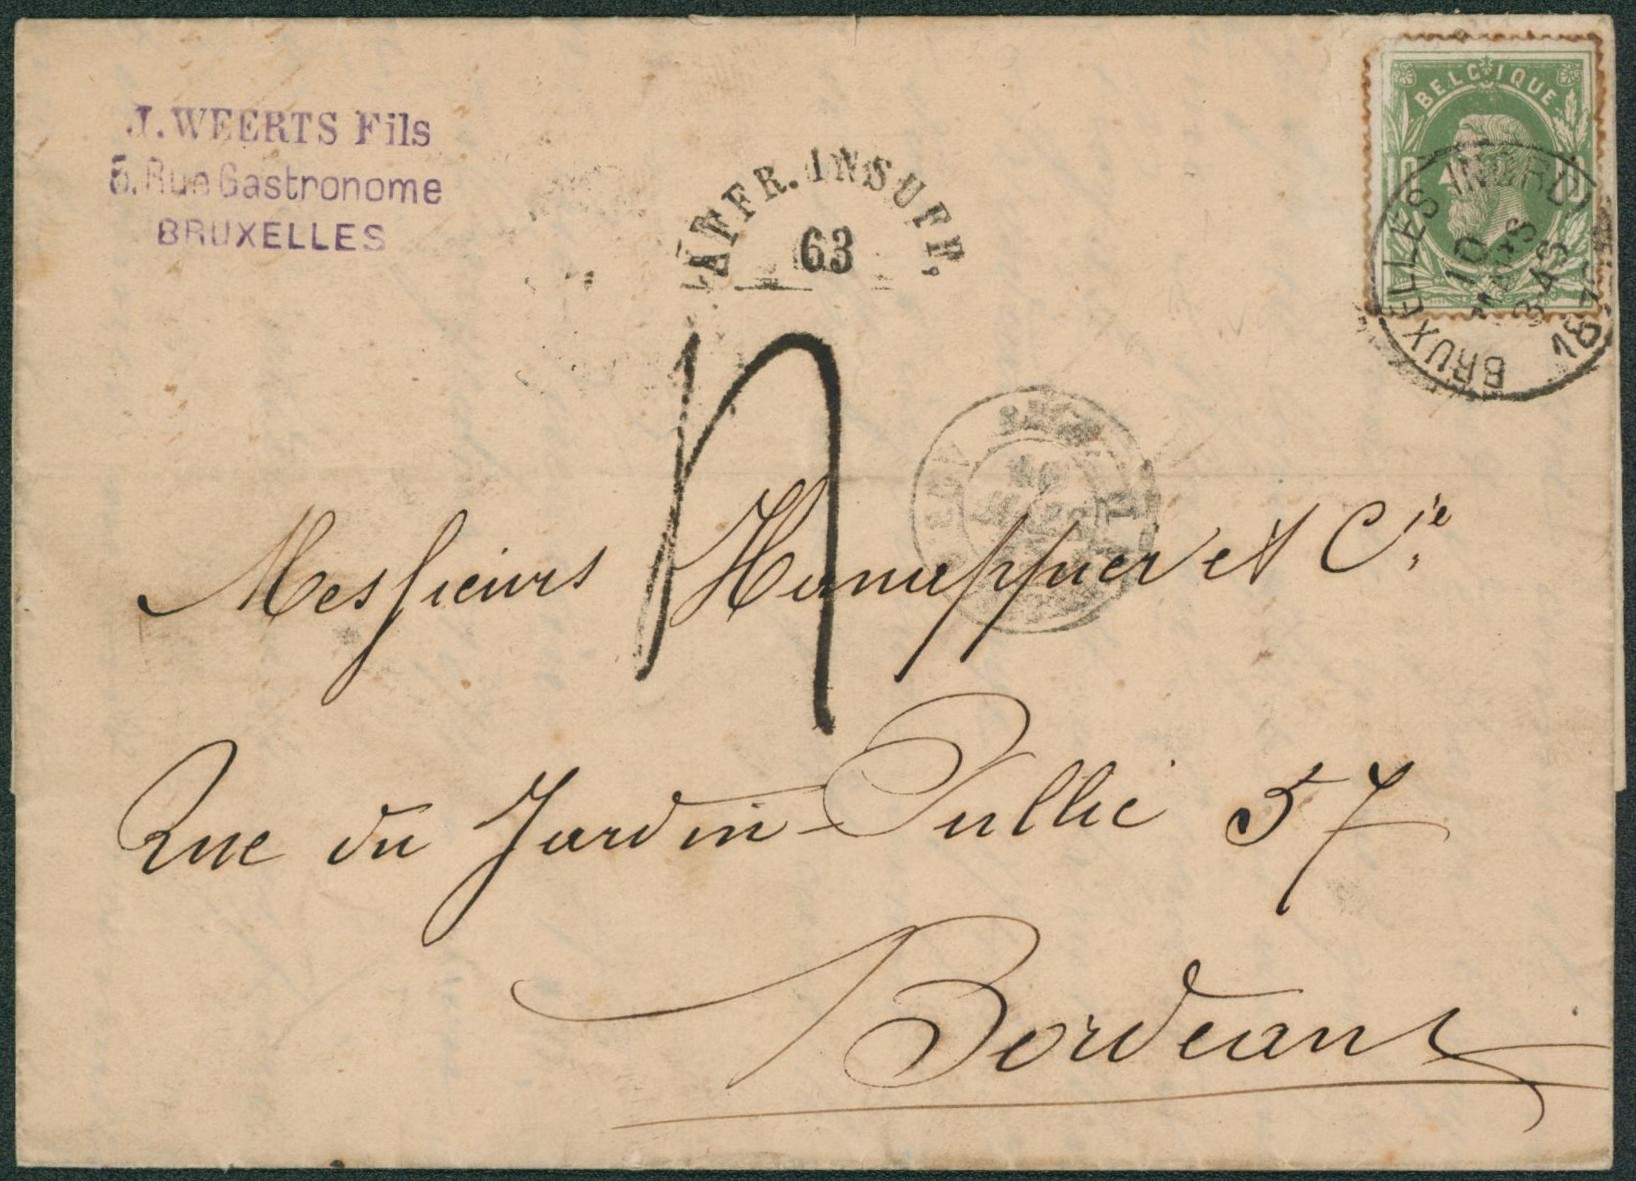 J. WEERTS Fils
5, Rue Gastronome
BRUXELLES
AFFR. INSUFF.
63
BELGIQUE
10
BRUXELLES
10
MARS
3-4S
Messieurs et Cie
Rue du Jardin-Public 57
Bordeaux